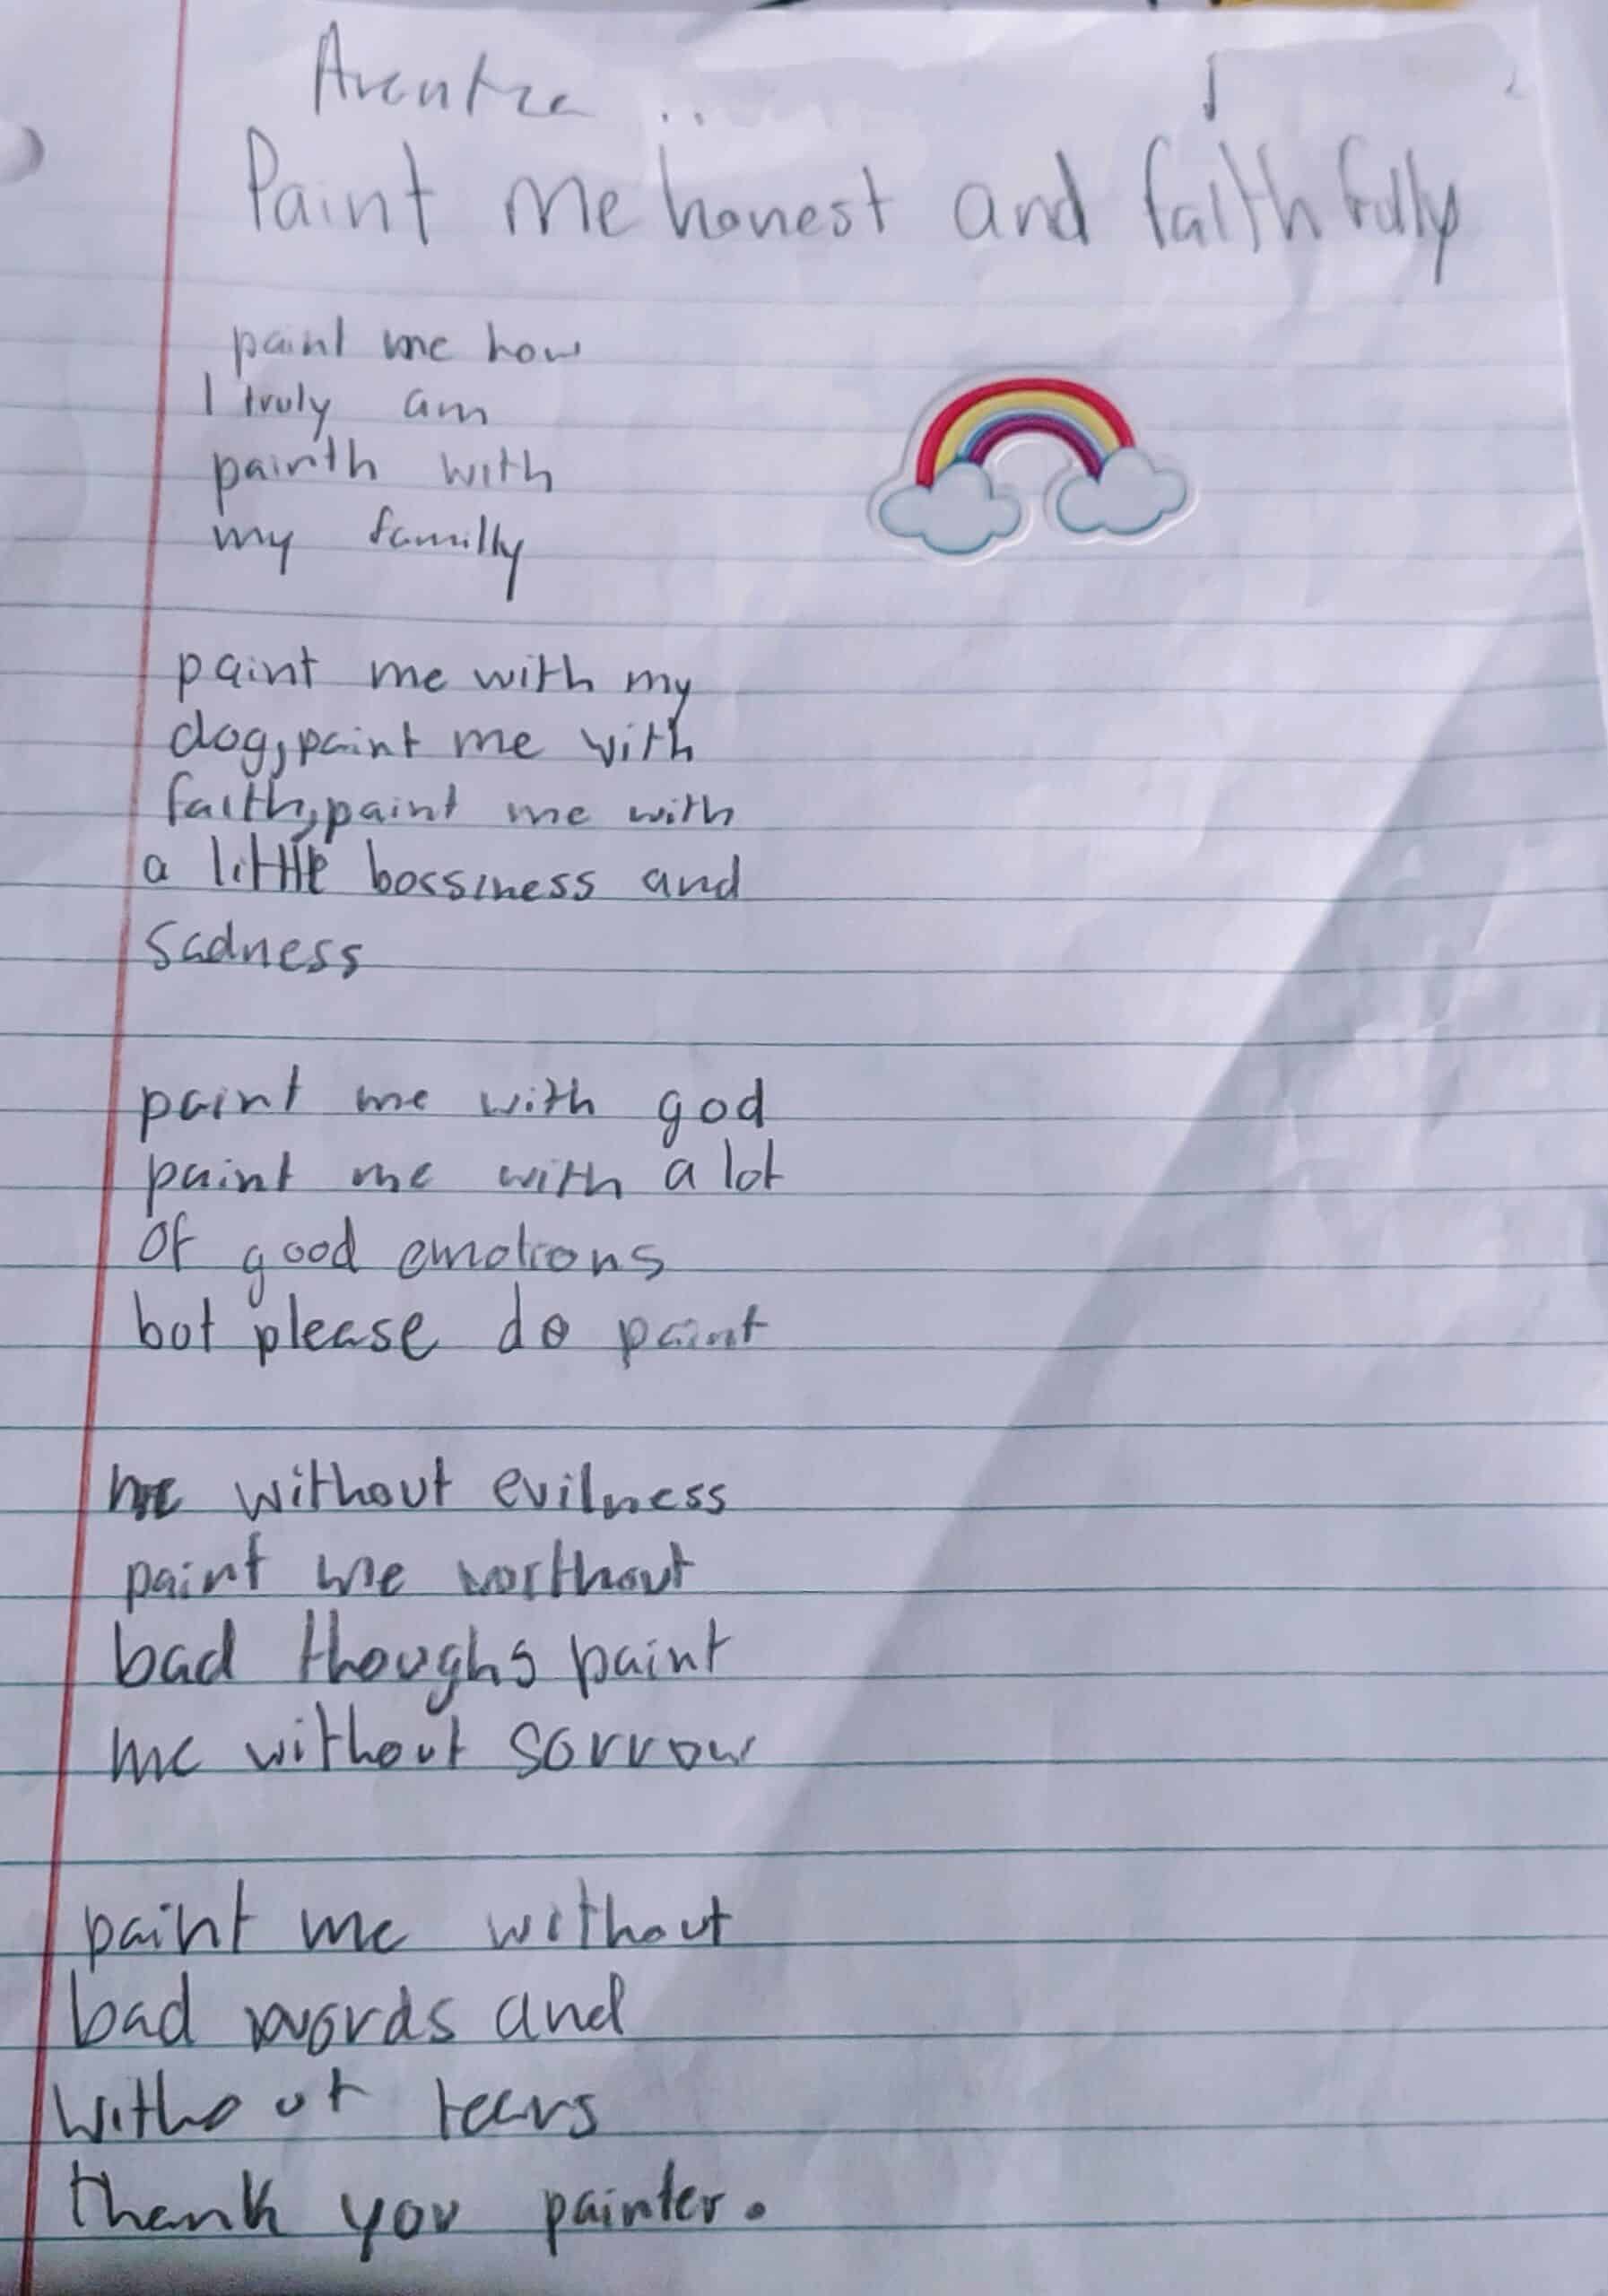 Paint me honest and faithfully
paint me how
I truly am
painth with
my familly
paint me with my
dog, paint me with
faith, paint me with
a little bossiness and
sadness
paint me with god
paint me with a lot
of good emotions
but please do paint
me without evilness
paint me worthout
bad thoughs paint
me without sorrow
paint me without
bad words and
without tears
thank you painter.